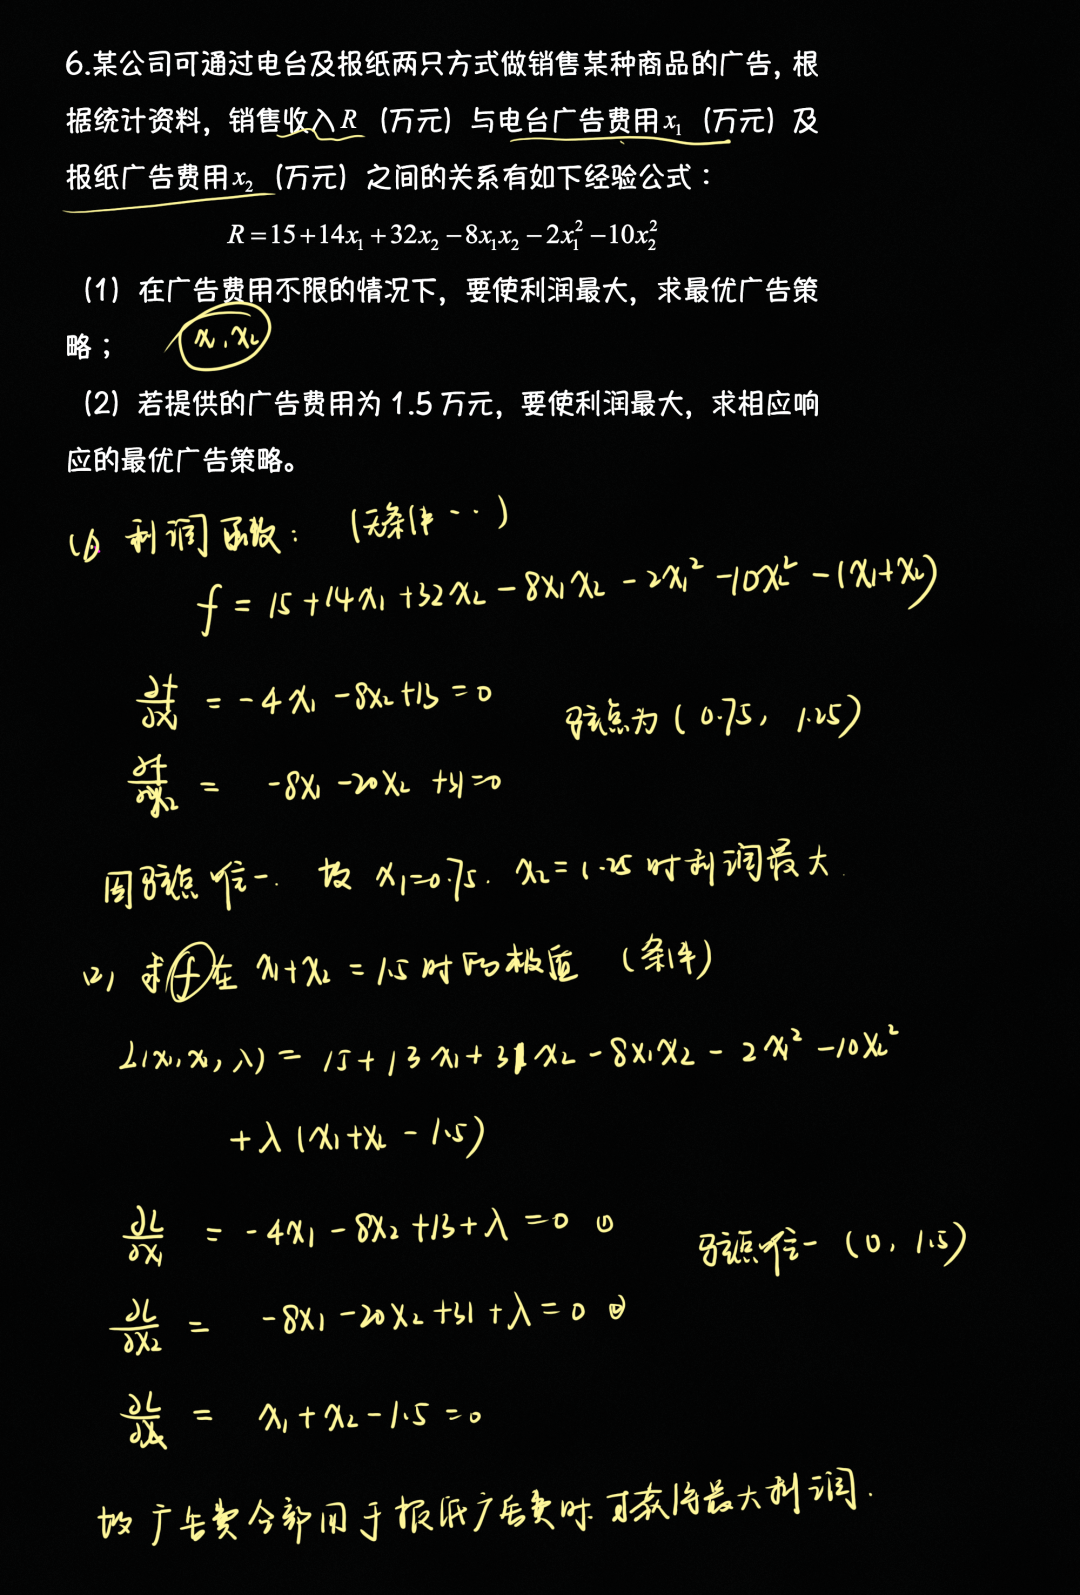 6.某公司可通过电台及报纸两只方式做销售某种商品的广告，根
据统计资料，销售收入R（万元）与电台广告费用x₁（万元）及
报纸广告费用x₂（万元）之间的关系有如下经验公式：
R=15+14x₁+32x₂−8x₁x₂−2x₁²−10x₂²
（1）在广告费用不限的情况下，要使利润最大，求最优广告策
略；
x₁,x₂
（2）若提供的广告费用为 1.5 万元，要使利润最大，求相应响
应的最优广告策略。
(1) 利润函数：（无条件··）
f = 15+14x₁+32x₂−8x₁x₂−2x₁²−10x₂²−(x₁+x₂)
∂f/∂x₁ = −4x₁−8x₂+13=0
驻点为(0.75, 1.25)
∂f/∂x₂ = −8x₁−20x₂+31=0
因驻点唯一. 故 x₁=0.75. x₂=1.25时利润最大.
(2) 求f在 x₁+x₂=1.5时的极值（条件）
L(x₁,x₂,λ) = 15+13x₁+31x₂−8x₁x₂−2x₁²−10x₂²
+λ(x₁+x₂−1.5)
∂L/∂x₁ = −4x₁−8x₂+13+λ=0 ①
驻点唯一 (0, 1.5)
∂L/∂x₂ = −8x₁−20x₂+31+λ=0 ②
= x₁+x₂−1.5=0
故广告费全部用于报纸广告费时.可获得最大利润.